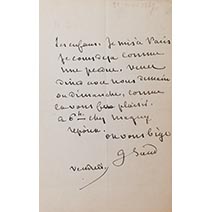 Les enfans. Je suis à Paris
Je cours déjà comme
une perdue. Venez
diner avec nous demain
ou dimanche, comme
ça vous fera plaisir.
à 6h chez Magny
réponse
G Sand
vendredi